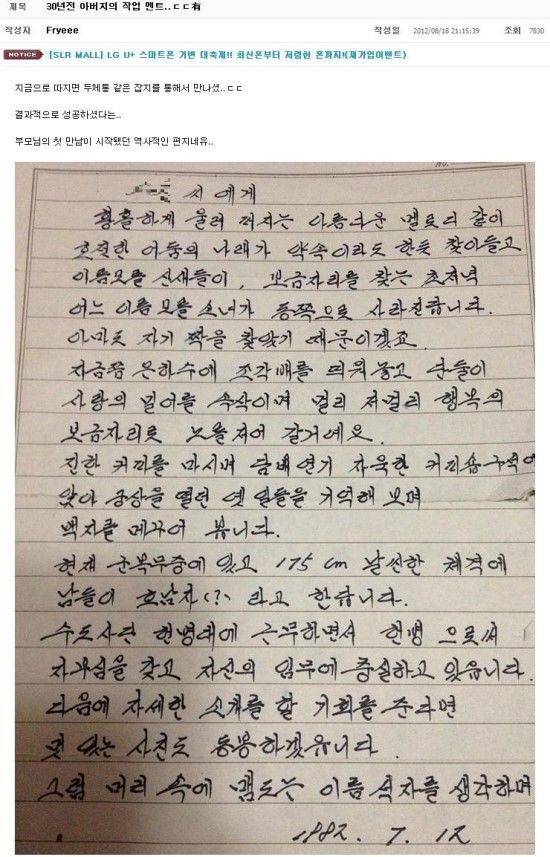 제목 30년전 아버지의 작업 멘트..ㄷㄷ有
작성자 Fryeee 작성일 2012/08/18 21:15:39 조회 7830
NOTICE [SLR MALL] LG U+ 스마트폰 가변 대축제!! 최신폰부터 저렴한 폰까지!(재가입이벤트)
지금으로 따지면 두체통 같은 잡지를 통해서 만나셨..ㄷㄷ
결과적으로 성공하셨다는..
부모님의 첫 만남이 시작됐던 역사적인 편지네유..
NO.
씨에게
황홀하게 울려 퍼지는 아름다운 멜로디 같이
호젓한 어둠의 나래가 약속이라도 한듯 찾아들고
이름모를 산새들이, 보금자리를 찾는 초저녁
어느 이름 모를 소녀가 동쪽으로 사라진답니다.
아마도 자기 짝을 찾았기 때문이겠죠.
지금쯤 은하수에 조각배를 띄워 놓고 단둘이
사랑의 밀어를 속삭이며 멀리 저멀리 행복의
보금자리로 노를 저어 갈거예요.
진한 커피를 마시며 담배연기 자욱한 커피숍 구석에
앉아 궁상을 떨던 옛 일들을 기억해 보며
백지를 메꾸어 봅니다.
현재 군복무중에 있고 175 cm 날씬한 체격에
남들이 호남자(?) 라고 한답니다.
수도사단 헌병대에 근무하면서 헌병 으로써
자부심을 갖고 자신의 임무에 충실하고 있읍니다.
다음에 자세한 소개를 할 기회를 준다면
멋 있는 사진도 동봉하겠읍니다.
그럼 머리 속에 맴도는 이름 석자를 생각하며
1982. 7. 12